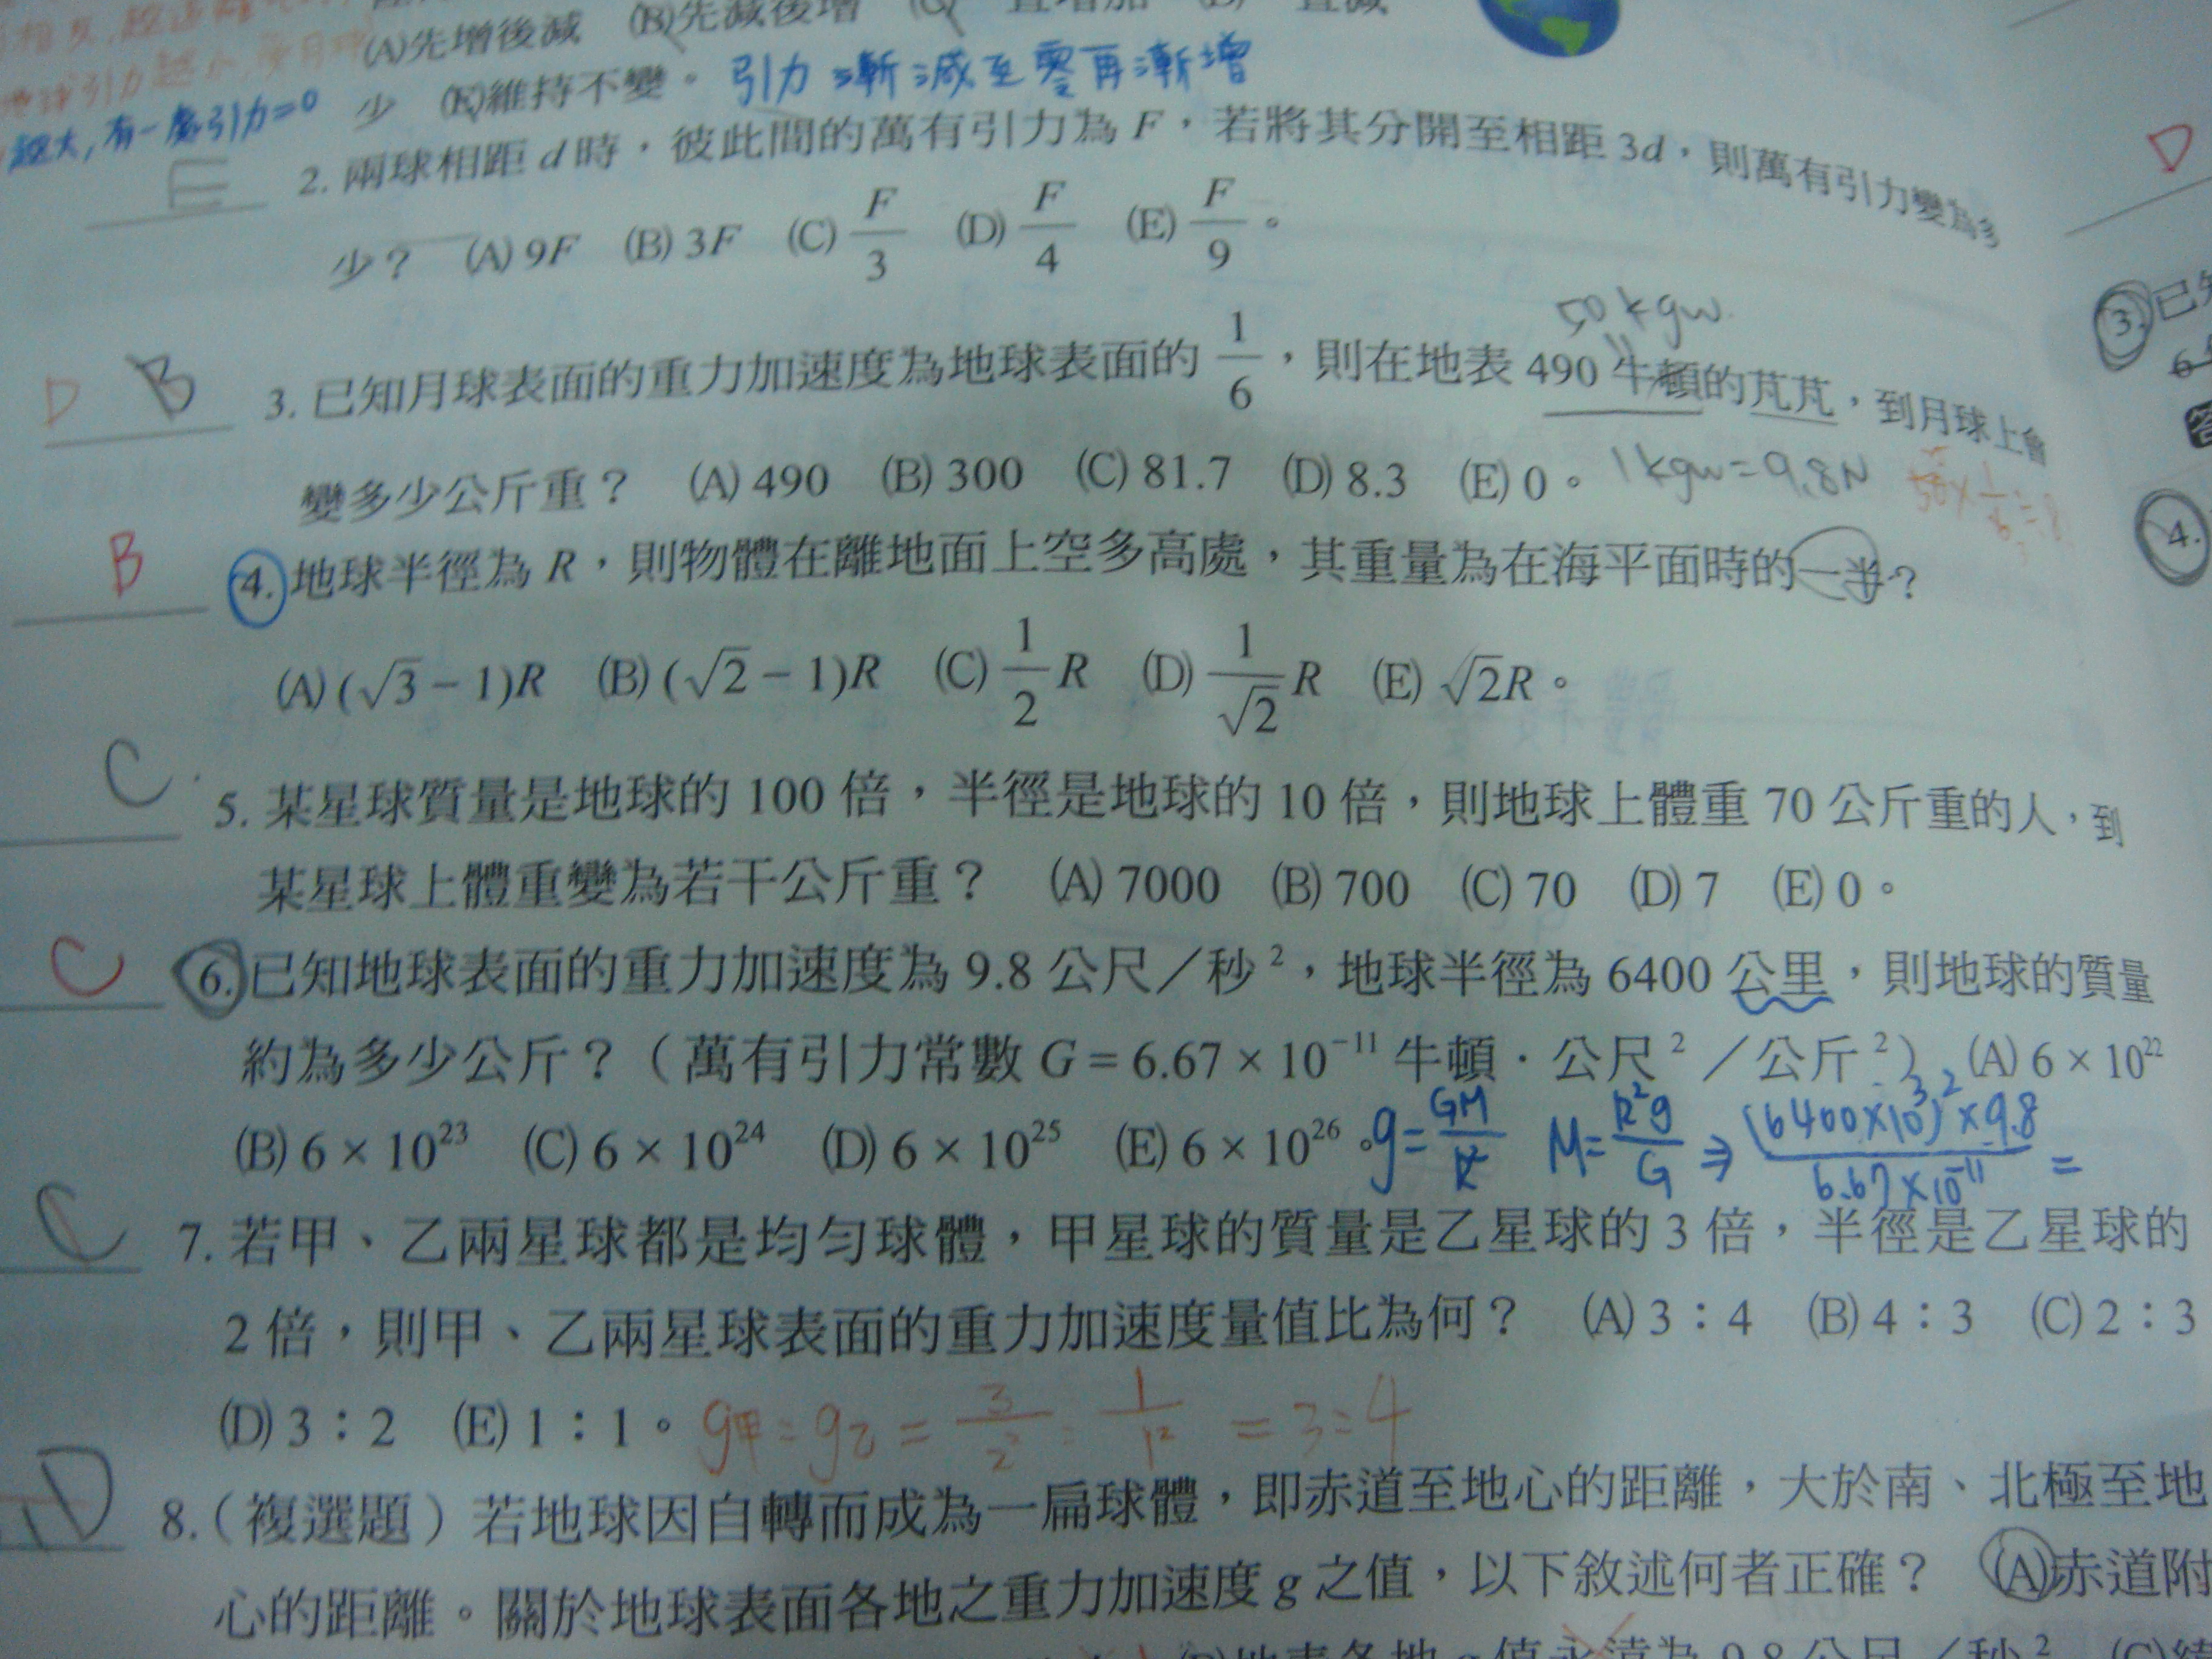 (A)先增後減 (B)先減後增
少 (E)維持不變。 引力漸減至零再漸增
越大,有一處引力=0
E 2. 兩球相距 d 時,彼此間的萬有引力為 F,若將其分開至相距 3d,則萬有引力變為多
少? (A) 9F (B) 3F (C) F/3 (D) F/4 (E) F/9。
50 kgw
D B 3. 已知月球表面的重力加速度為地球表面的 1/6,則在地表 490 牛頓的芃芃,到月球上會
變多少公斤重? (A) 490 (B) 300 (C) 81.7 (D) 8.3 (E) 0。 1kgw=9.8N
B 4. 地球半徑為 R,則物體在離地面上空多高處,其重量為在海平面時的一半?
(A) (√3−1)R (B) (√2−1)R (C) 1/2 R (D) 1/√2 R (E) √2R。
C 5. 某星球質量是地球的 100 倍,半徑是地球的 10 倍,則地球上體重 70 公斤重的人,到
某星球上體重變為若干公斤重? (A) 7000 (B) 700 (C) 70 (D) 7 (E) 0。
C 6. 已知地球表面的重力加速度為 9.8 公尺/秒²,地球半徑為 6400 公里,則地球的質量
約為多少公斤?(萬有引力常數 G = 6.67 × 10⁻¹¹ 牛頓·公尺²/公斤²) (A) 6 × 10²²
(B) 6 × 10²³ (C) 6 × 10²⁴ (D) 6 × 10²⁵ (E) 6 × 10²⁶。 g=GM/R² M=R²g/G ⇒ (6400×10³)²×9.8/6.67×10⁻¹¹ =
C 7. 若甲、乙兩星球都是均勻球體,甲星球的質量是乙星球的 3 倍,半徑是乙星球的
2 倍,則甲、乙兩星球表面的重力加速度量值比為何? (A) 3:4 (B) 4:3 (C) 2:3
(D) 3:2 (E) 1:1。 g甲:g乙 = 3/2² : 1/1² = 3:4
D 8.(複選題)若地球因自轉而成為一扁球體,即赤道至地心的距離,大於南、北極至地
心的距離。關於地球表面各地之重力加速度 g 之值,以下敘述何者正確? (A)赤道附
(B)地表各地 g 值永遠為 9.8 公尺/秒² (C)
D
3. 已知
4.